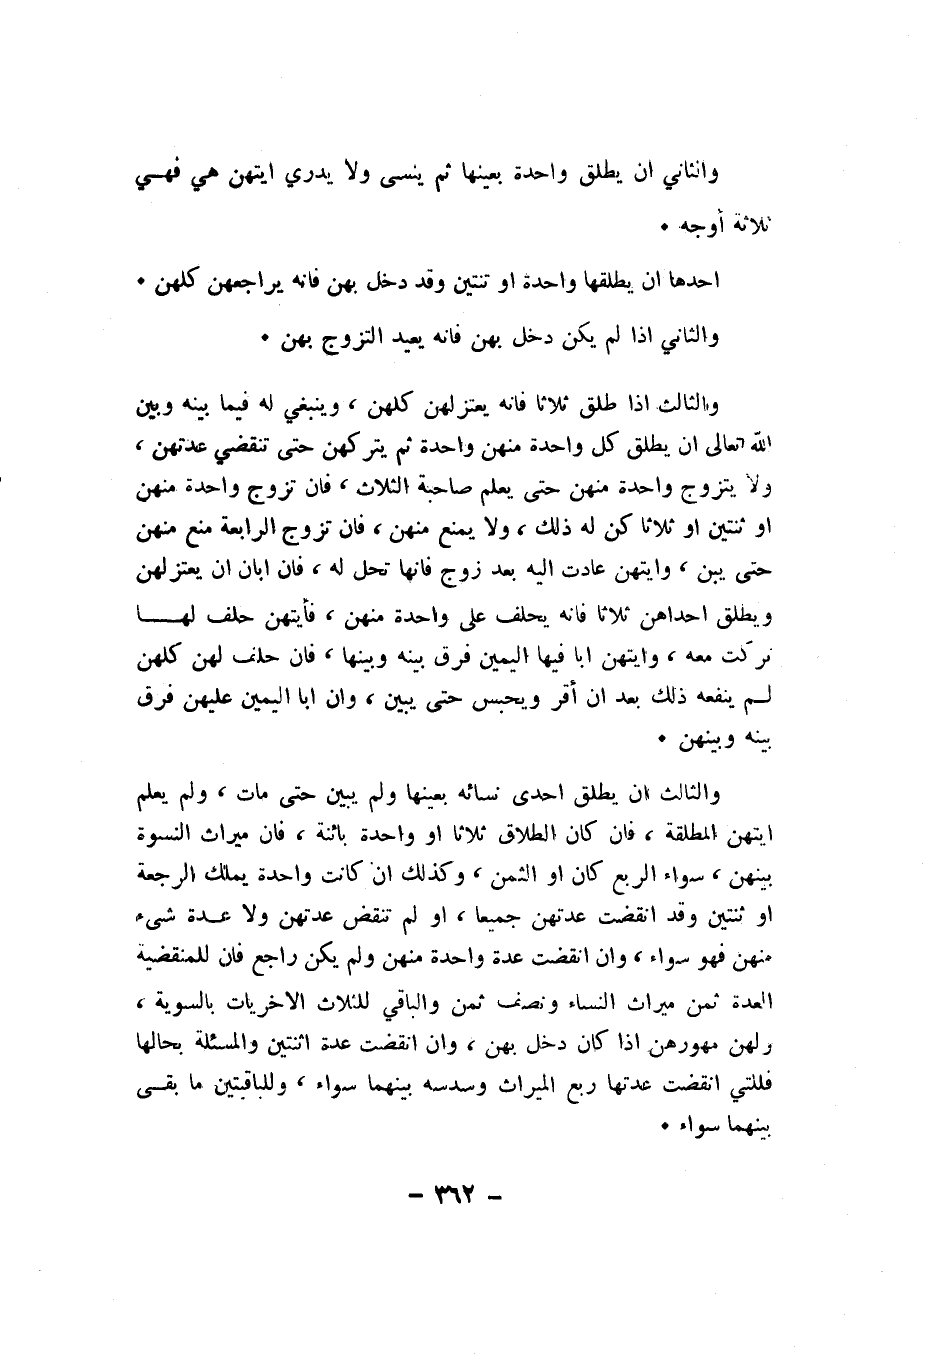 والثاني ان يطلق واحدة بعينها ثم ينسى ولا يدري ايتهن هي فهـي
ثلاثة أوجه ٠
احدها ان يطلقها واحدة او تنتين وقد دخل بهن فانه يراجعهن كلهن ٠
والثاني اذا لم يكن دخل بهن فانه يعيد التزوج بهن ٠
والثالث اذا طلق ثلاثا فانه يعتزلهن كلهن ، وينبغي له فيما بينه وبين
الله تعالى ان يطلق كل واحدة منهن واحدة ثم يتركهن حتى تنقضي عدتهن ،
ولا يتزوج واحدة منهن حتى يعلم صاحبة الثلاث ، فان تزوج واحدة منهن
او ثنتين او ثلاثا كن له ذلك ، ولا يمنع منهن ، فان تزوج الرابعة منع منهن
حتى يبن ، وايتهن عادت اليه بعد زوج فانها تحل له ، فان ابان ان يعتزلهن
ويطلق احداهن ثلاثا فانه يحلف على واحدة منهن ، فأيتهن حلف لهـــا
تركت معه ، وايتهن ابا فيها اليمين فرق بينه وبينها ، فان حلف لهن كلهن
لــم ينفعه ذلك بعد ان أقر ويحبس حتى يبين ، وان ابا اليمين عليهن فرق
بينه وبينهن ٠
والثالث ان يطلق احدى نسائه بعينها ولم يبين حتى مات ، ولم يعلم
ايتهن المطلقة ، فان كان الطلاق ثلاثا او واحدة بائنة ، فان ميراث النسوة
بينهن ، سواء الربع كان او الثمن ، وكذلك ان كانت واحدة يملك الرجعة
او ثنتين وقد انقضت عدتهن جميعا ، او لم تنقض عدتهن ولا عـدة شيء
منهن فهو سواء ، وان انقضت عدة واحدة منهن ولم يكن راجع فان للمنقضية
العدة ثمن ميراث النساء ونصف ثمن والباقي للثلاث الاخريات بالسوية ،
ولهن مهورهن اذا كان دخل بهن ، وان انقضت عدة اثنتين والمسئلة بحالها
فللتي انقضت عدتها ربع الميراث وسدسه بينهما سواء ، وللباقيتين ما بقـى
بينهما سواء ٠
– ٣٦٢ –